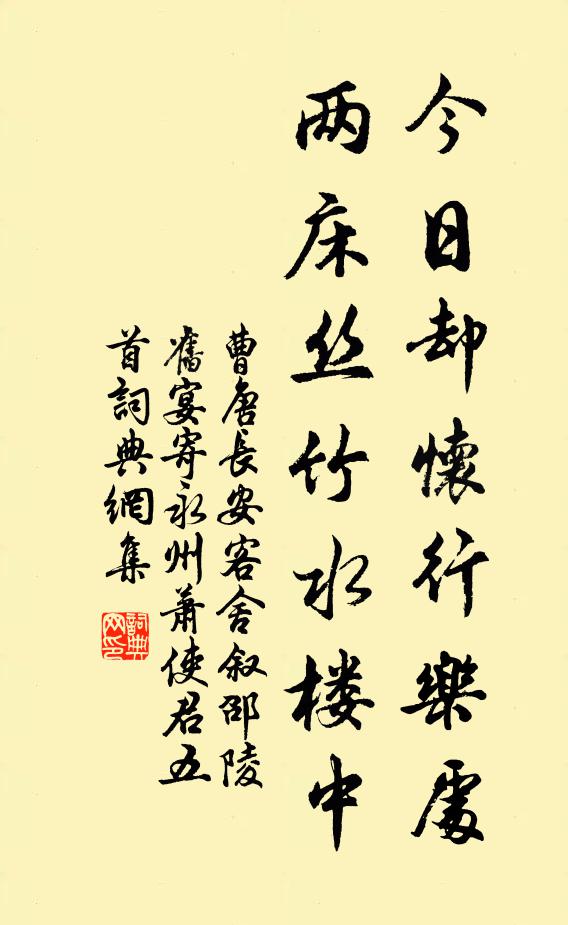 今日却懷行樂處
两床丝竹水楼中
曹唐長安客舍叙邵陵
舊宴寄永州蕭使君五
首詞典網集
詞典
网印